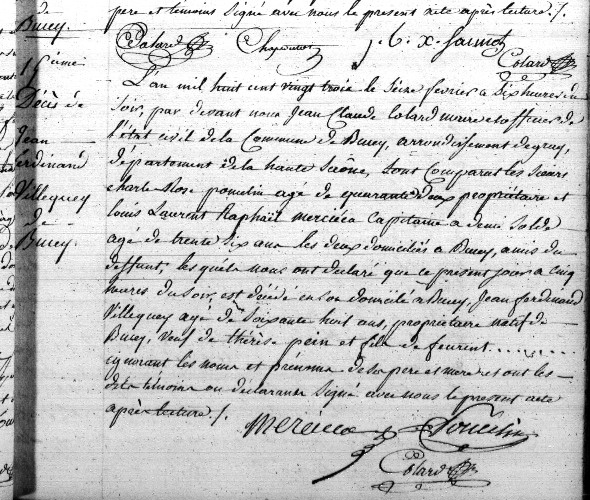 pere et témoins signé avec nous le present acte après lecture ./.
de
Bucey
Colard
C. x. Jaumot
Colard
Décès de
Jean
ferdinand
Villeguey
de
Bucey
L'an mil huit cent vingt trois le seize fevrier a six heures du
soir, par devant nous Jean Claude Colard maire et officier de
l'état civil de la Commune de Bucey, arrondissement de gray,
département de la haute Saône, sont comparus les sieurs
charle Rose poncelin agé de quarante deux propriétaire et
louis Laurent Raphaël merciéca Capitaine a demi solde
agé de trente six ans les deux domiciliés a Bucey, amis du
deffunt, lesquels nous ont déclaré que ce present jour a cinq
heures du soir, est décédé en son domicile a Bucey, Jean ferdinand
Villeguey agé de soixante huit ans, propriétaire natif de
Bucey, Veuf de thérèse perin et fils de feurent ........
ignorant les noms et prénoms de sa pere et mere et ont les
dits témoins ou déclarants signé avec nous le present acte
après lecture ./.
merciéca
Poncelin
Colard